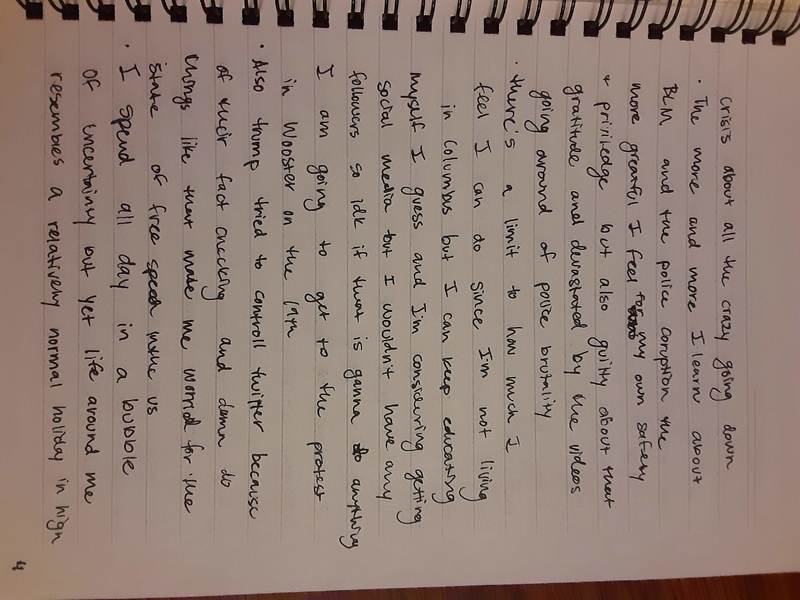 Crisis about all the crazy going down
• The more and more I learn about
BLM and the police coruption the
more greatful I feel for my own safety
+ priviledge but also guilty about that
gratitude and devastated by the videos
going around of police brutality
• there's a limit to how much I
feel I can do since I'm not living
in Columbus but I can keep educating
myself I guess and I'm considering getting
social media but I wouldn't have any
followers so idk if that is gonna do anything
I am going to get to the protest
in Wooster on the 19th
• Also trump tried to controll twitter because
of their fact checking and damn do
things like that make me worried for the
state of free speech in the us
• I spend all day in a bubble
of uncertainty but yet life around me
resembles a relatively normal holiday in high
4